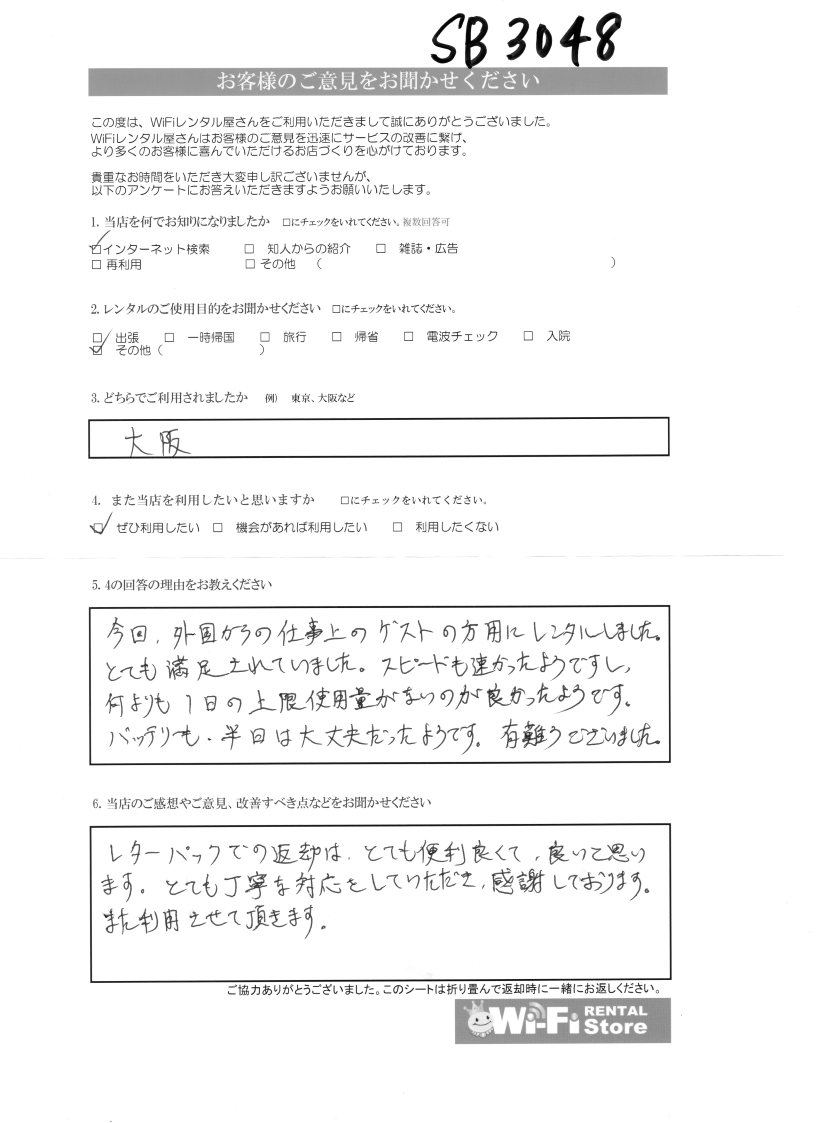 SB 3048
お客様のご意見をお聞かせください
この度は、WiFiレンタル屋さんをご利用いただきまして誠にありがとうございました。
WiFiレンタル屋さんはお客様のご意見を迅速にサービスの改善に繋げ、
より多くのお客様に喜んでいただけるお店づくりを心がけております。
貴重なお時間をいただき大変申し訳ございませんが、
以下のアンケートにお答えいただきますようお願いいたします。
1. 当店を何でお知りになりましたか □にチェックをいれてください。複数回答可
☑インターネット検索 □ 知人からの紹介 □ 雑誌・広告
□ 再利用 □ その他 ( )
2. レンタルのご使用目的をお聞かせください □にチェックをいれてください。
□ 出張 □ 一時帰国 □ 旅行 □ 帰省 □ 電波チェック □ 入院
☑ その他 ( )
3. どちらでご利用されましたか 例) 東京、大阪など
大阪
4. また当店を利用したいと思いますか □にチェックをいれてください。
☑ ぜひ利用したい □ 機会があれば利用したい □ 利用したくない
5. 4の回答の理由をお教えください
今回、外国からの仕事上のゲストの方用にレンタルしました。
とても満足されていました。スピードも速かったようですし、
何よりも1日の上限使用量がないのが良かったようです。
バッテリーも、半日は大丈夫だったようです。有難うございました。
6. 当店のご感想やご意見、改善すべき点などをお聞かせください
レターパックでの返却は、とても便利良くて、良いと思い
ます。とても丁寧な対応をしていただき、感謝しております。
また利用させて頂きます。
ご協力ありがとうございました。このシートは折り畳んで返却時に一緒にお返しください。
Wi-Fi RENTAL
Store